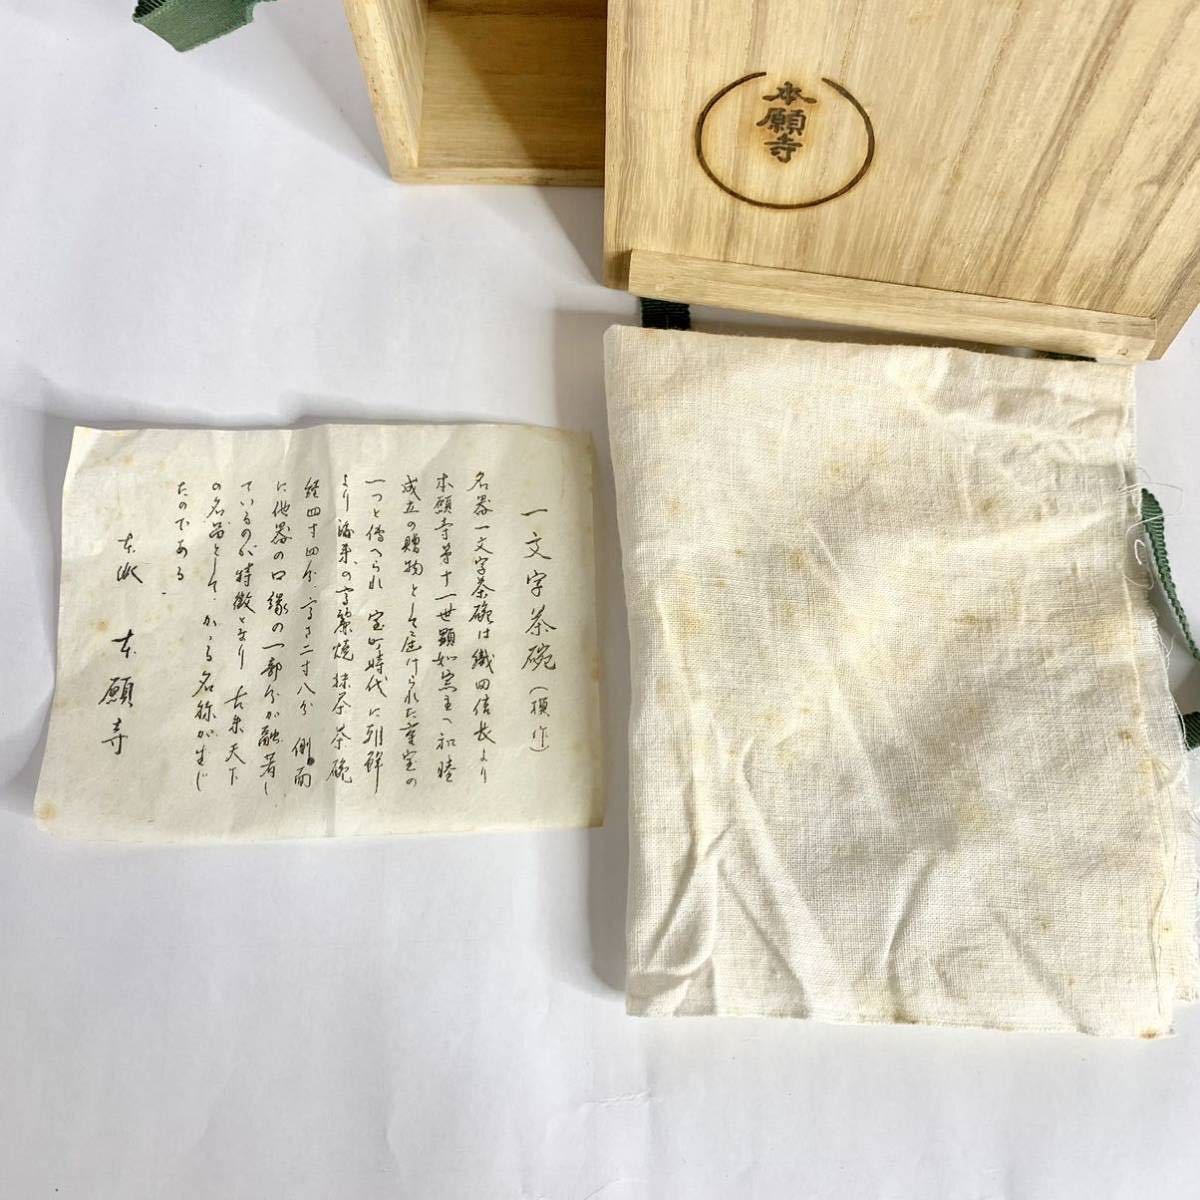 本願寺
一文字茶碗(模作)
名器一文字茶碗は織田信長より
本願寺第十一世顕如宗主へ和睦
成立の贈物として届けられた重宝の
一つと傳へられ 室町時代に朝鮮
より渡来の高麗焼抹茶茶碗
経四寸四分、高さ二寸八分 側面
に他器の口縁の一部分が融著し
ているのが特徴となり 古来天下
の名器として かゝる名称が生じ
たのである
京都 本願寺